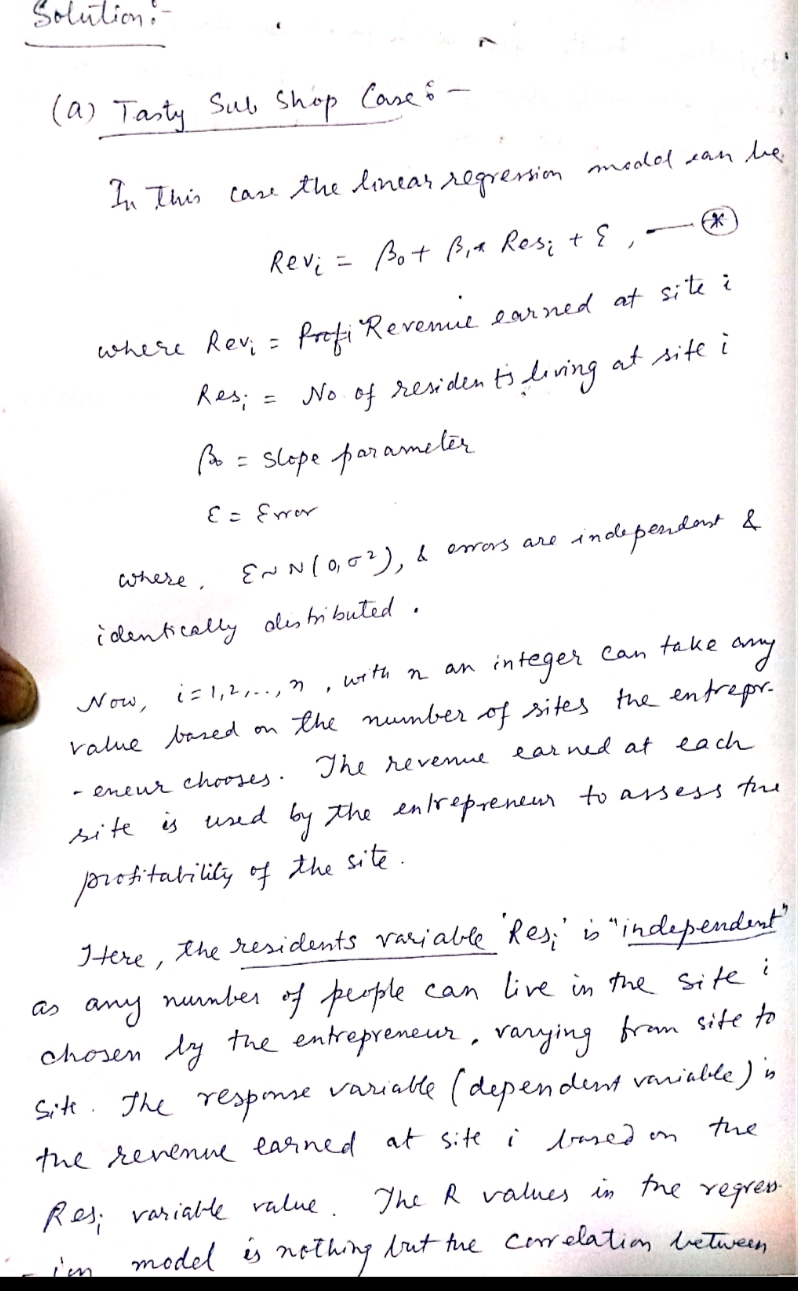 Solution:-
(a) Tasty Sub Shop Case:-
In This case the linear regression model can be
Revᵢ = β₀ + β₁* Resᵢ + ε, — (*)
where Revᵢ = Revenue earned at site i
Resᵢ = No of residents living at site i
β₀ = slope parameter
ε = Error
where, ε ~ N(0, σ²), & errors are independent &
identically distributed.
Now, i=1,2,..,n, with n an integer can take any
value based on the number of sites the entrepr-
-eneur chooses. The revenue earned at each
site is used by the entrepreneur to assess the
profitability of the site.
Here, the residents variable 'Resᵢ' is "independent"
as any number of people can live in the site i
chosen by the entrepreneur, varying from site to
site. The response variable (dependent variable) is
the revenue earned at site i based on the
Resᵢ variable value. The R values in the regress-
-ion model is nothing but the correlation between